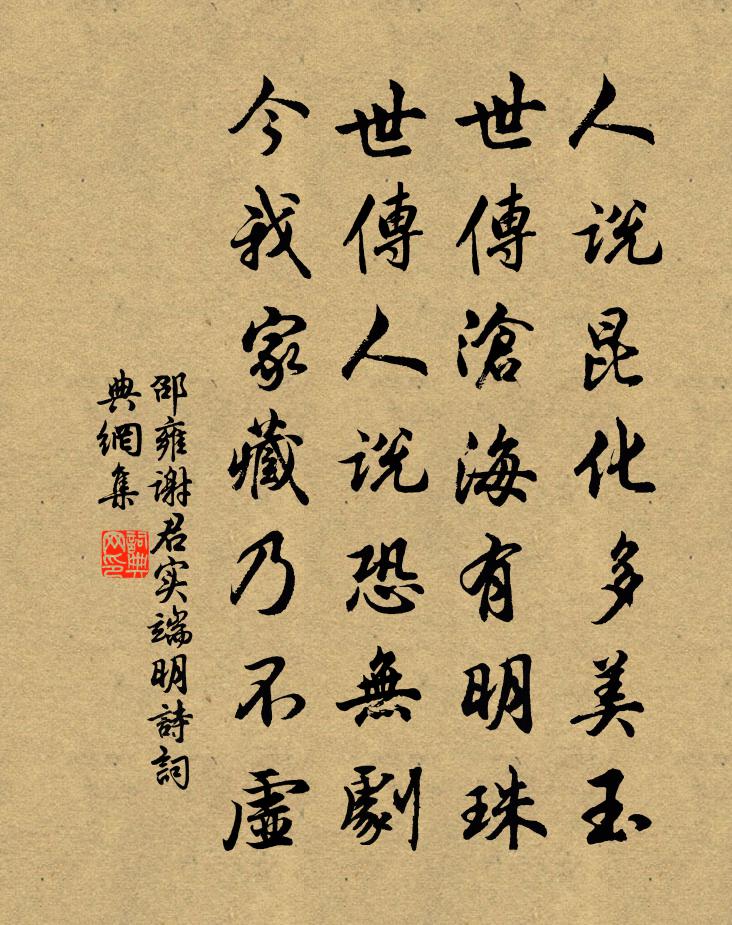 人说昆化多美玉
世傳滄海有明珠
世傳人说恐無劇
今我家藏乃不虛
邵雍谢君实端明詩詞
典網集
詞典
网印